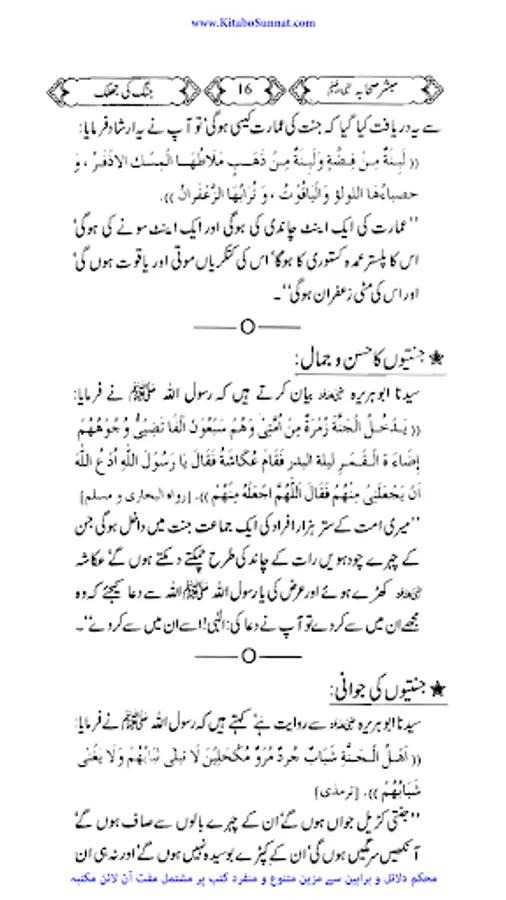 www.KitaboSunnat.com
مبشر صحابہ رضی اللہ عنہم
16
جنت کی جھلک
سے یہ دریافت کیا گیا کہ جنت کی عمارت کیسی ہوگی تو آپ نے یہ ارشاد فرمایا:
(( لَبِنَةٌ مِنْ فِضَّةٍ وَلَبِنَةٌ مِنْ ذَهَبٍ مَلَاطُهَا الْمِسْكُ الْاَذْفَرُ ، وَ
حصباءُهَا اللولوُ وَالْيَاقُوْتُ ، وَ تُرَابُهَا الزَّعْفَرانُ )).
''عمارت کی ایک اینٹ چاندی کی ہوگی اور ایک اینٹ سونے کی ہوگی'
اس کا پلستر عمدہ کستوری کا ہوگا' اس کی کنکریاں موتی اور یاقوت ہوں گی'
اور اس کی مٹی زعفران ہوگی''۔
★ جنتیوں کا حسن و جمال:
سیدنا ابو ہریرہ رضی اللہ عنہ بیان کرتے ہیں کہ رسول اللہ ﷺ نے فرمایا:
(( يَدْخُلُ الْجَنَّةَ زُمْرَةٌ مِنْ اُمَّتِىْ وَهُمْ سَبْعُوْنَ اَلْفًا تُضِيْئُ وُجُوْهُهُمْ
إِضَاءَةَ الْقَمَرِ لَيْلَةَ الْبَدرِ فَقَامَ عُكَاشَةُ فَقَالَ يَا رَسُوْلَ اللّٰهِ اُدْعُ اللّٰهَ
اَنْ يَجْعَلَنِىْ مِنْهُمْ فَقَالَ اَللّٰهُمَّ اجْعَلْهُ مِنْهُمْ )). [رواه البخاری و مسلم]
''میری امت کے ستر ہزار افراد کی ایک جماعت جنت میں داخل ہوگی جن
کے چہرے چودہویں رات کے چاند کی طرح چمکتے دمکتے ہوں گے' عکاشہ
رضی اللہ عنہ کھڑے ہوئے اور عرض کی یا رسول اللہ ﷺ اللہ سے دعا کیجئے کہ وہ
مجھے ان میں سے کر دے تو آپ نے دعا کی: الٰہی! اسے ان میں سے کر دے''۔
★ جنتیوں کی جوانی:
سیدنا ابو ہریرہ رضی اللہ عنہ سے روایت ہے' کہتے ہیں کہ رسول اللہ ﷺ نے فرمایا:
(( اَهْلُ الْجَنَّةِ شَبَابٌ جُردٌ مُرْدٌ مُكَحَّلِيْنَ لَا تبلٰى ثِيَابُهُمْ وَلَا يَفْنٰى
شَبَابُهُمْ )). [ترمذی]
''جنتی کڑیل جواں ہوں گے' ان کے چہرے بالوں سے صاف ہوں گے'
آنکھیں سرمگیں ہوں گی' ان کے کپڑے بوسیدہ نہیں ہوں گے' اور نہ ہی ان
محکم دلائل و براہین سے مزین متنوع و منفرد کتب پر مشتمل مفت آن لائن مکتبہ